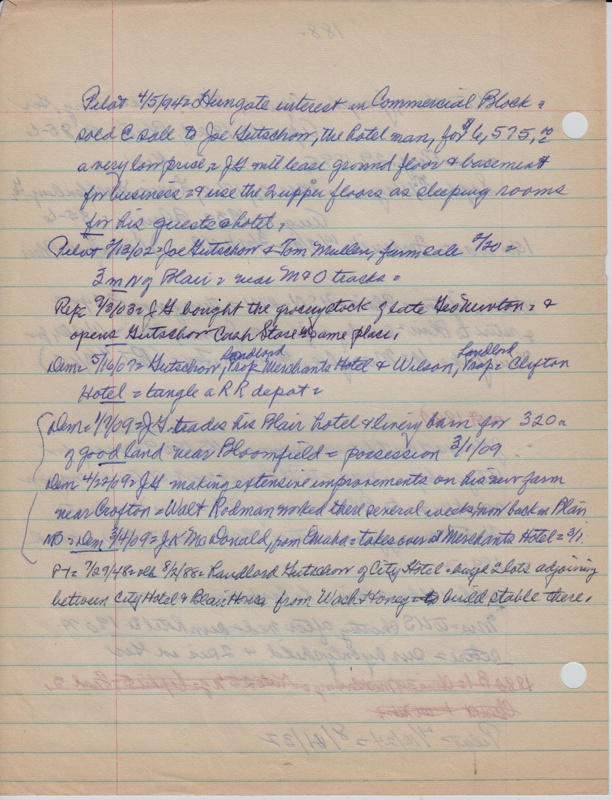 Pilot 4/5/94 = Hungate interest in Commercial Block =
sold C sale to Joe Gutschow, the hotel man, for $6,575,00
a very low price, = JG will lease ground floor & basement
for business = & use the 2 upper floors as sleeping rooms
for his guests @ hotel,
Pilot 2/13/02 = Joe Gutschow & Tom Mullen, farm sale 2/20 =
3 m N of Blair = near M & O tracks =
Rep: 9/3/03 = JG bought the grocery stock of late Geo Newton = &
opens Gutschow Cash Store @ same place,
Dem = 5/16/07 = Gutschow, Landlord Prop. Merchants Hotel & Wilson, Landlord Prop = Clifton
Hotel = tangle @ RR depot =
Dem = 1/7/09 = JG trades his Blair hotel & livery barn for 320 a
of good land near Bloomfield = possession 3/1/09
Dem 4/22/09 = JG making extensive improvements on his new farm
near Crofton = Walt Rodman worked there several weeks, now back in Blair
NB = Dem 3/4/09 = J K McDonald, from Omaha = takes over @ Merchants Hotel = 3/1
Pt = 7/29/48 = 8/2/88 = Landlord Gutschow of City Hotel = buys 2 lots adjoining
between City Hotel & Blair House from Wash Honey = to build stable there,